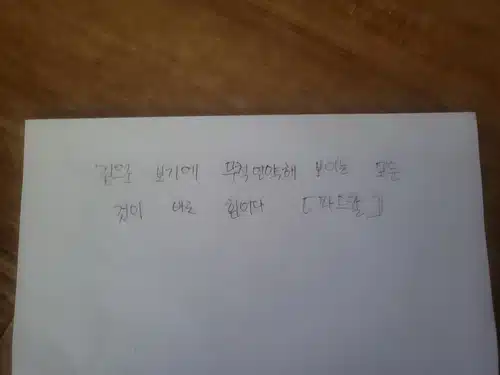 겉으로 보기에 무척 연약해 보이는 모든
것이 바로 힘이다 [파스칼]